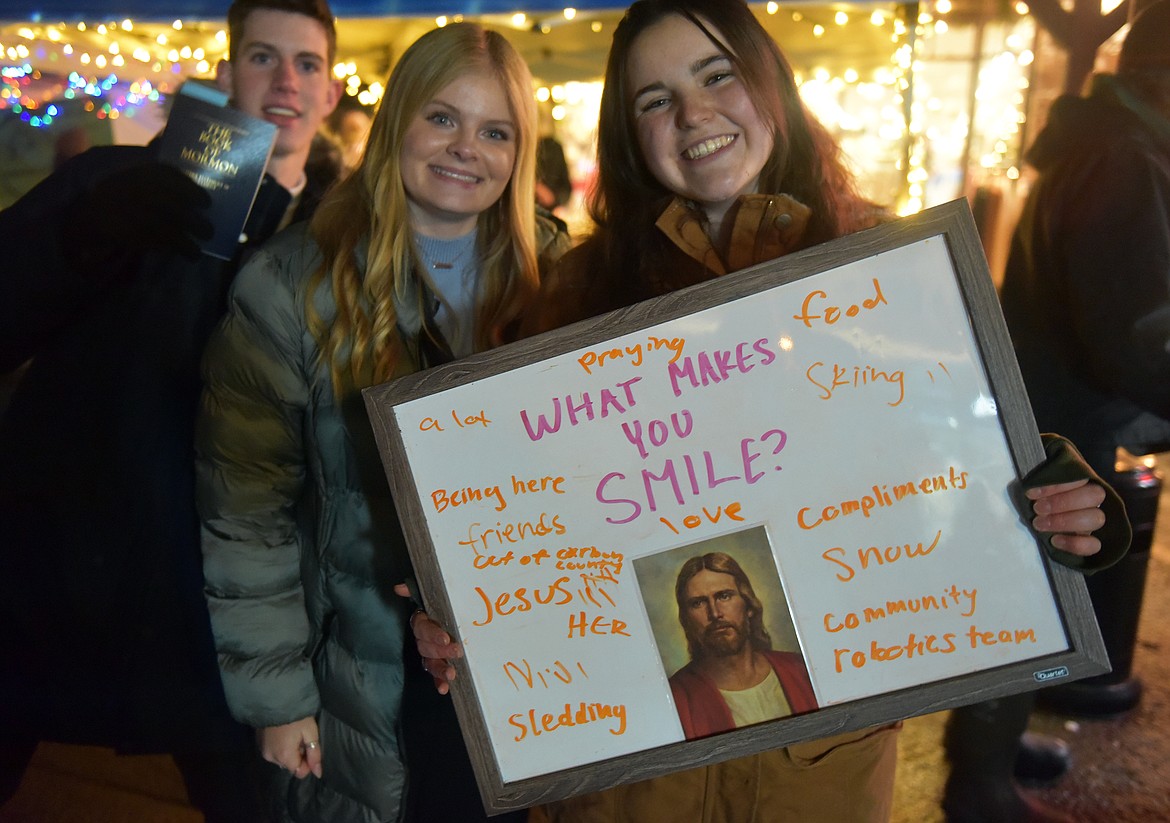 THE
BOOK
OF
MORMON
praying
food
WHAT MAKES
YOU
SMILE?
Skiing
a lot
Being here
friends
out of carbon
county
Jesus!!!
HER
Sledding
love
Compliments
Snow
community
robotics team
Quartet